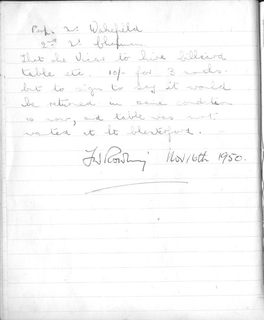 Prop. Lt. Wakefield
2nd Lt. Chapman
That the Vicar to hire billiard
table etc. 10/- for 3 wks.
but to sign to say it would
be returned in same condition
is now, and table was not
wanted it Lt
Nov 16th 1950.